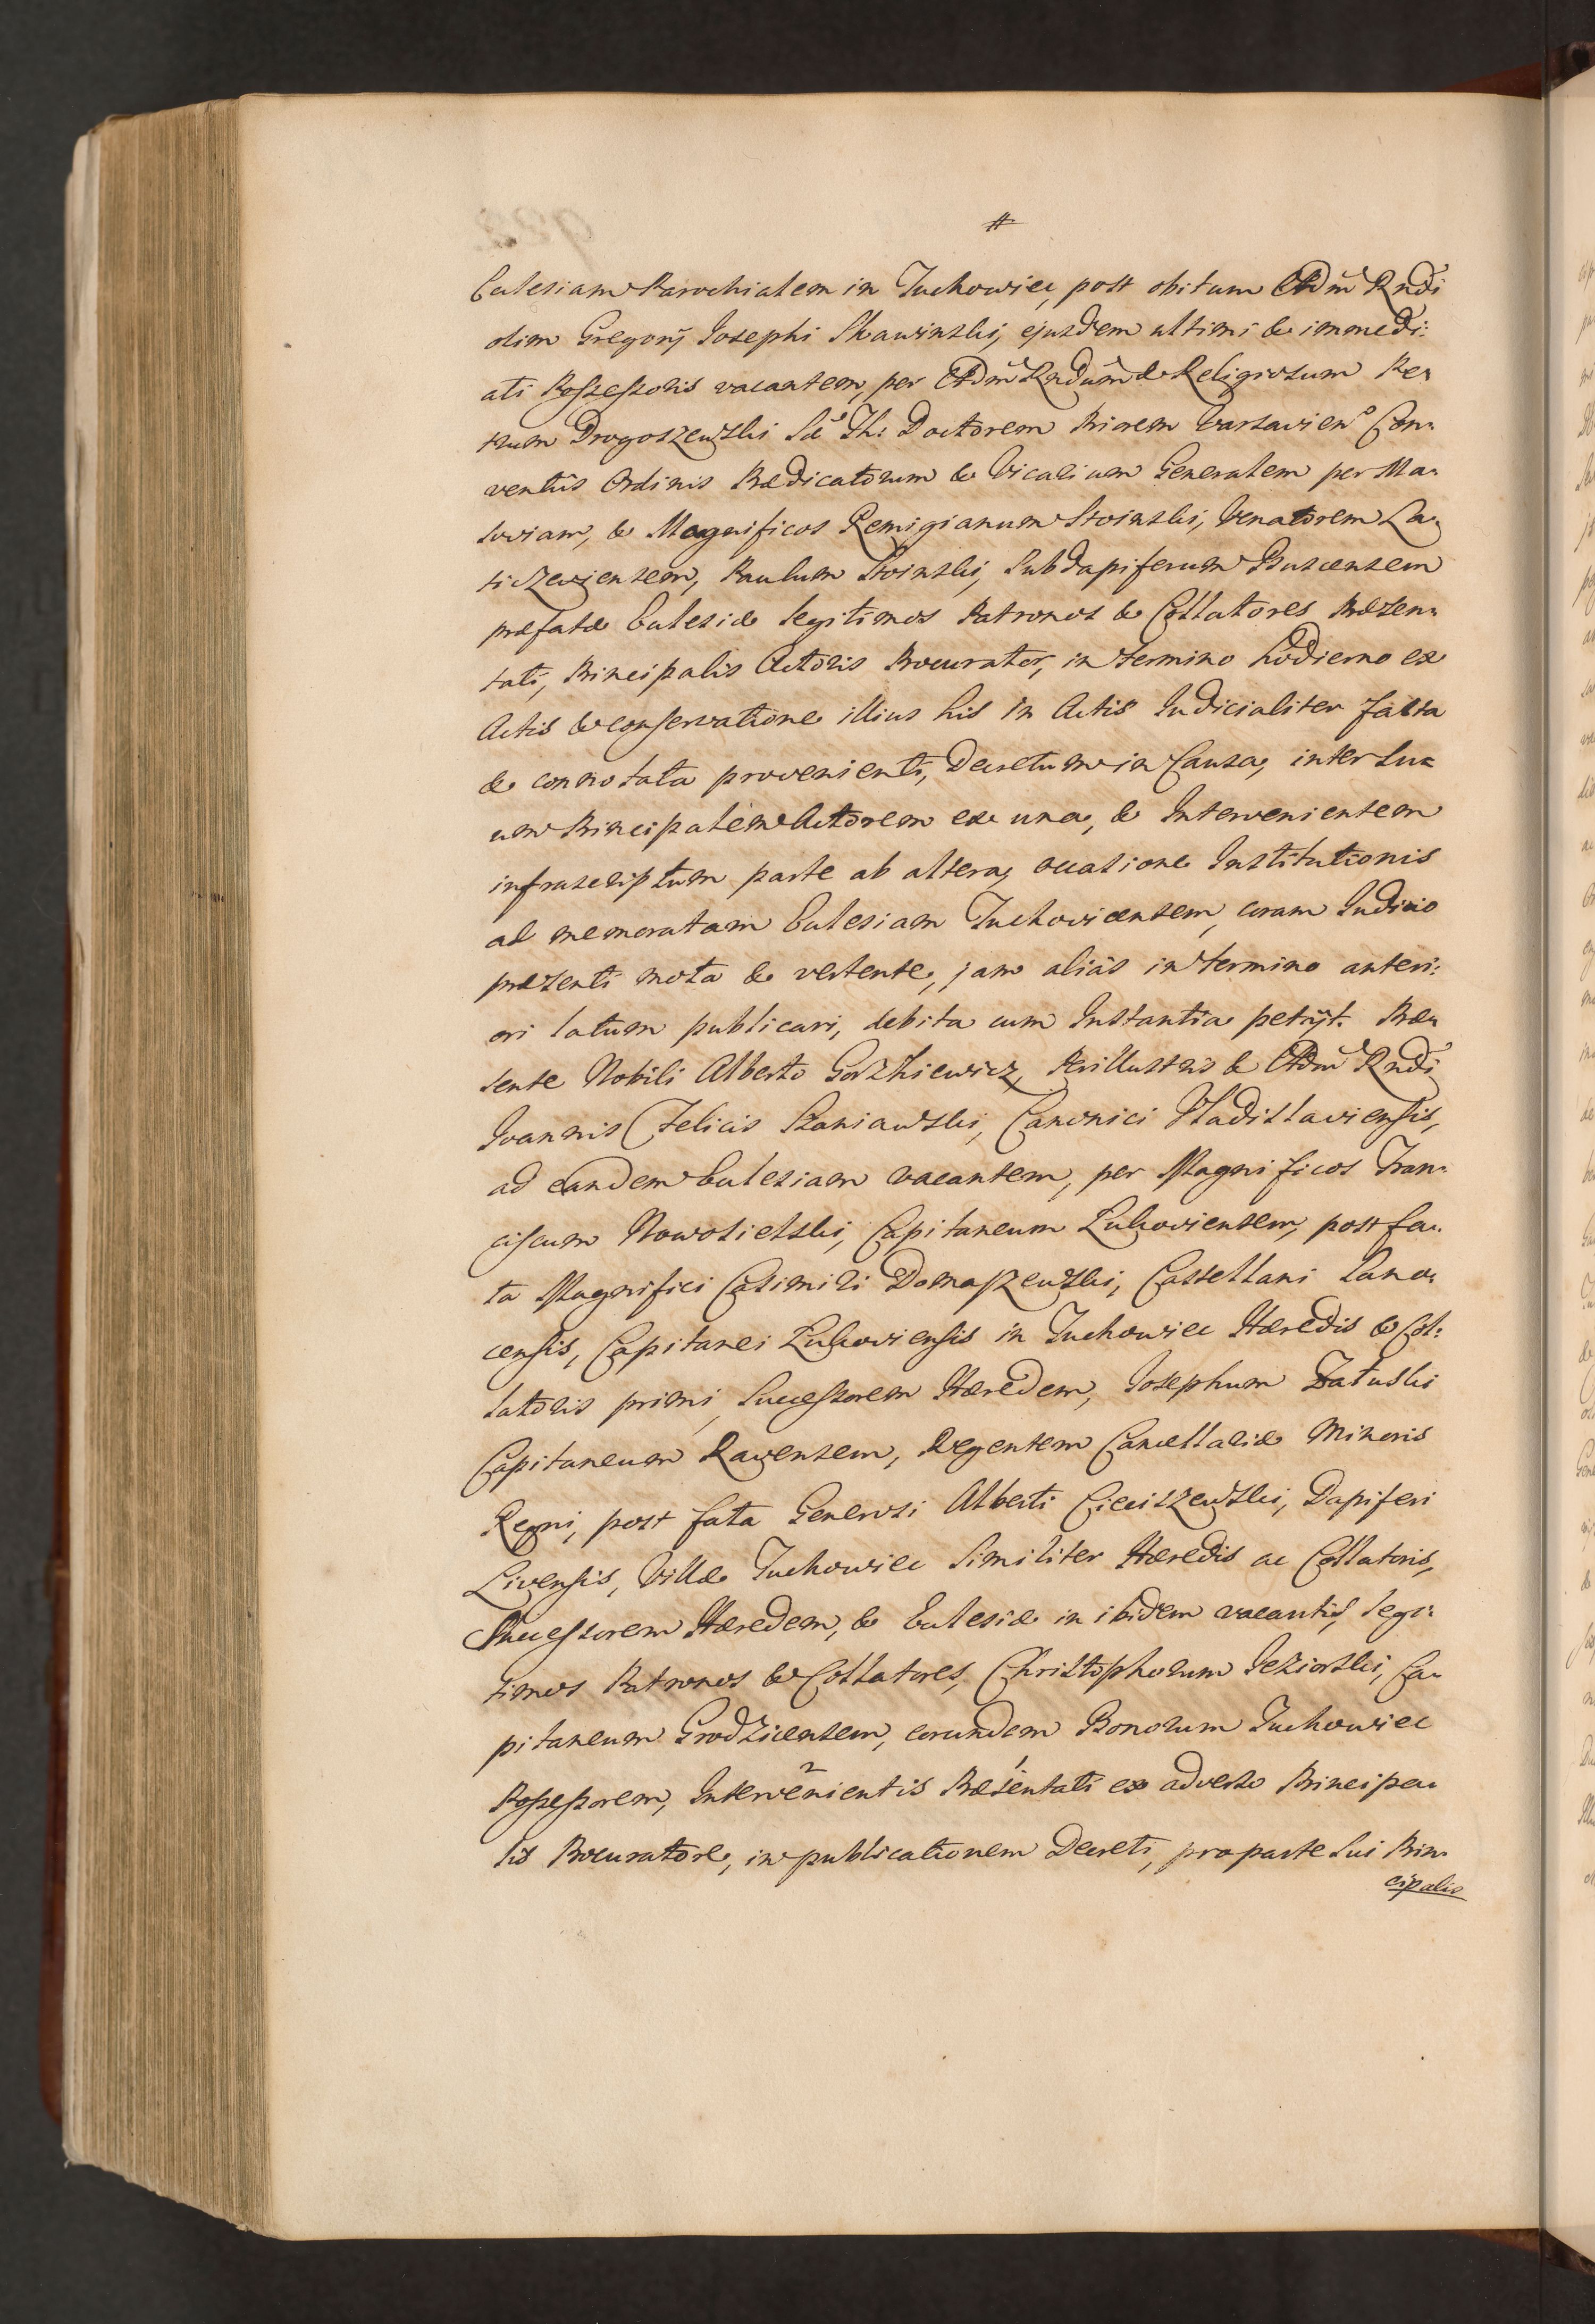 #
Ecclesiam Parochialem in Tuchowiec, post obitum Adm̃ Rndi
olim Gregorij Josephi Skawinski, ejusdem ultimi & immedi:
ati Possessoris vacantem, per Adm̃ Rndum & Religiosum Pe:
trum Drogoszewski S. Th: Doctorem Priorem Varsavien Con:
ventûs Ordinis Prædicatorum & Vicarium Generalem per Ma:
soviam, & Magnificos Remigianum Stoinski, Venatorem La:
ticzeviensem, Paulum Stoinski, Subdapiferum Buscensem
præfatæ Ecclesiæ legitimos Patronos & Collatores Præsen:
tati, Principalis Actoris Procurator, in termino hodierno ex
Actis & conservatione illius his in Actis Judicialiter facta
& connotata provenienti, Decretum in Causa, inter Su:
um Principalem Actorem ex una, & Intervenientem
infrascriptum parte ab altera, occasione Institutionis
ad memoratam Ecclesiam Tuchovicensem, coram Judicio
præsenti mota & vertente, jam aliàs in termino anteri:
ori latum publicari, debita cum Instantia petijt. Præ:
sente Nobili Alberto Gorzkiewicz, Perillustris & Adm̃ Rndi
Joannis Felicis Szaniawski, Canonici Vladislaviensis,
ad eandem Ecclesiam vacantem, per Magnificos Fran:
ciscum Nowosielski, Capitaneum Lukoviensem, post fa:
ta Magnifici Casimiri Domaszewski, Castellani Sano:
censis, Capitanei Lukoviensis in Tuchowiec Hæredis & Col:
latoris primi, Successorem Hæredem, Josephum Załuski
Capitaneum Ravensem, Regentem Cancellariæ Minoris
Regni, post fata Generosi Alberti Cieciszewski, Dapiferi
Livensis, Villæ Tuchowiec similiter Hæredis ac Collatoris,
Successorem Hæredem, & Ecclesiæ in ibidem vacantis, legi:
timos Patronos & Collatores, Christophorum Jezierski, Ca:
pitaneum Grodzicensem, eorundem Bonorum Tuchowiec
Possessorem, Intervenientis Præsentati ex adverso Principa:
lis Procuratore, in publicationem Decreti, pro parte sui Prin:
cipalis